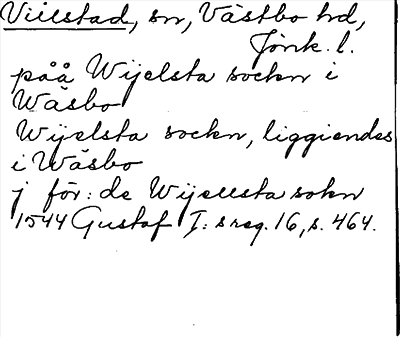 Villstad, sn, Västbo hd,
Jönk. l.
påå Wijelsta sockn i
Wäsbo
Wijelsta sockn, liggiendes
i Wäsbo
j för: de Wijellsta sokn
1544 Gustaf I: s reg. 16, s. 464.